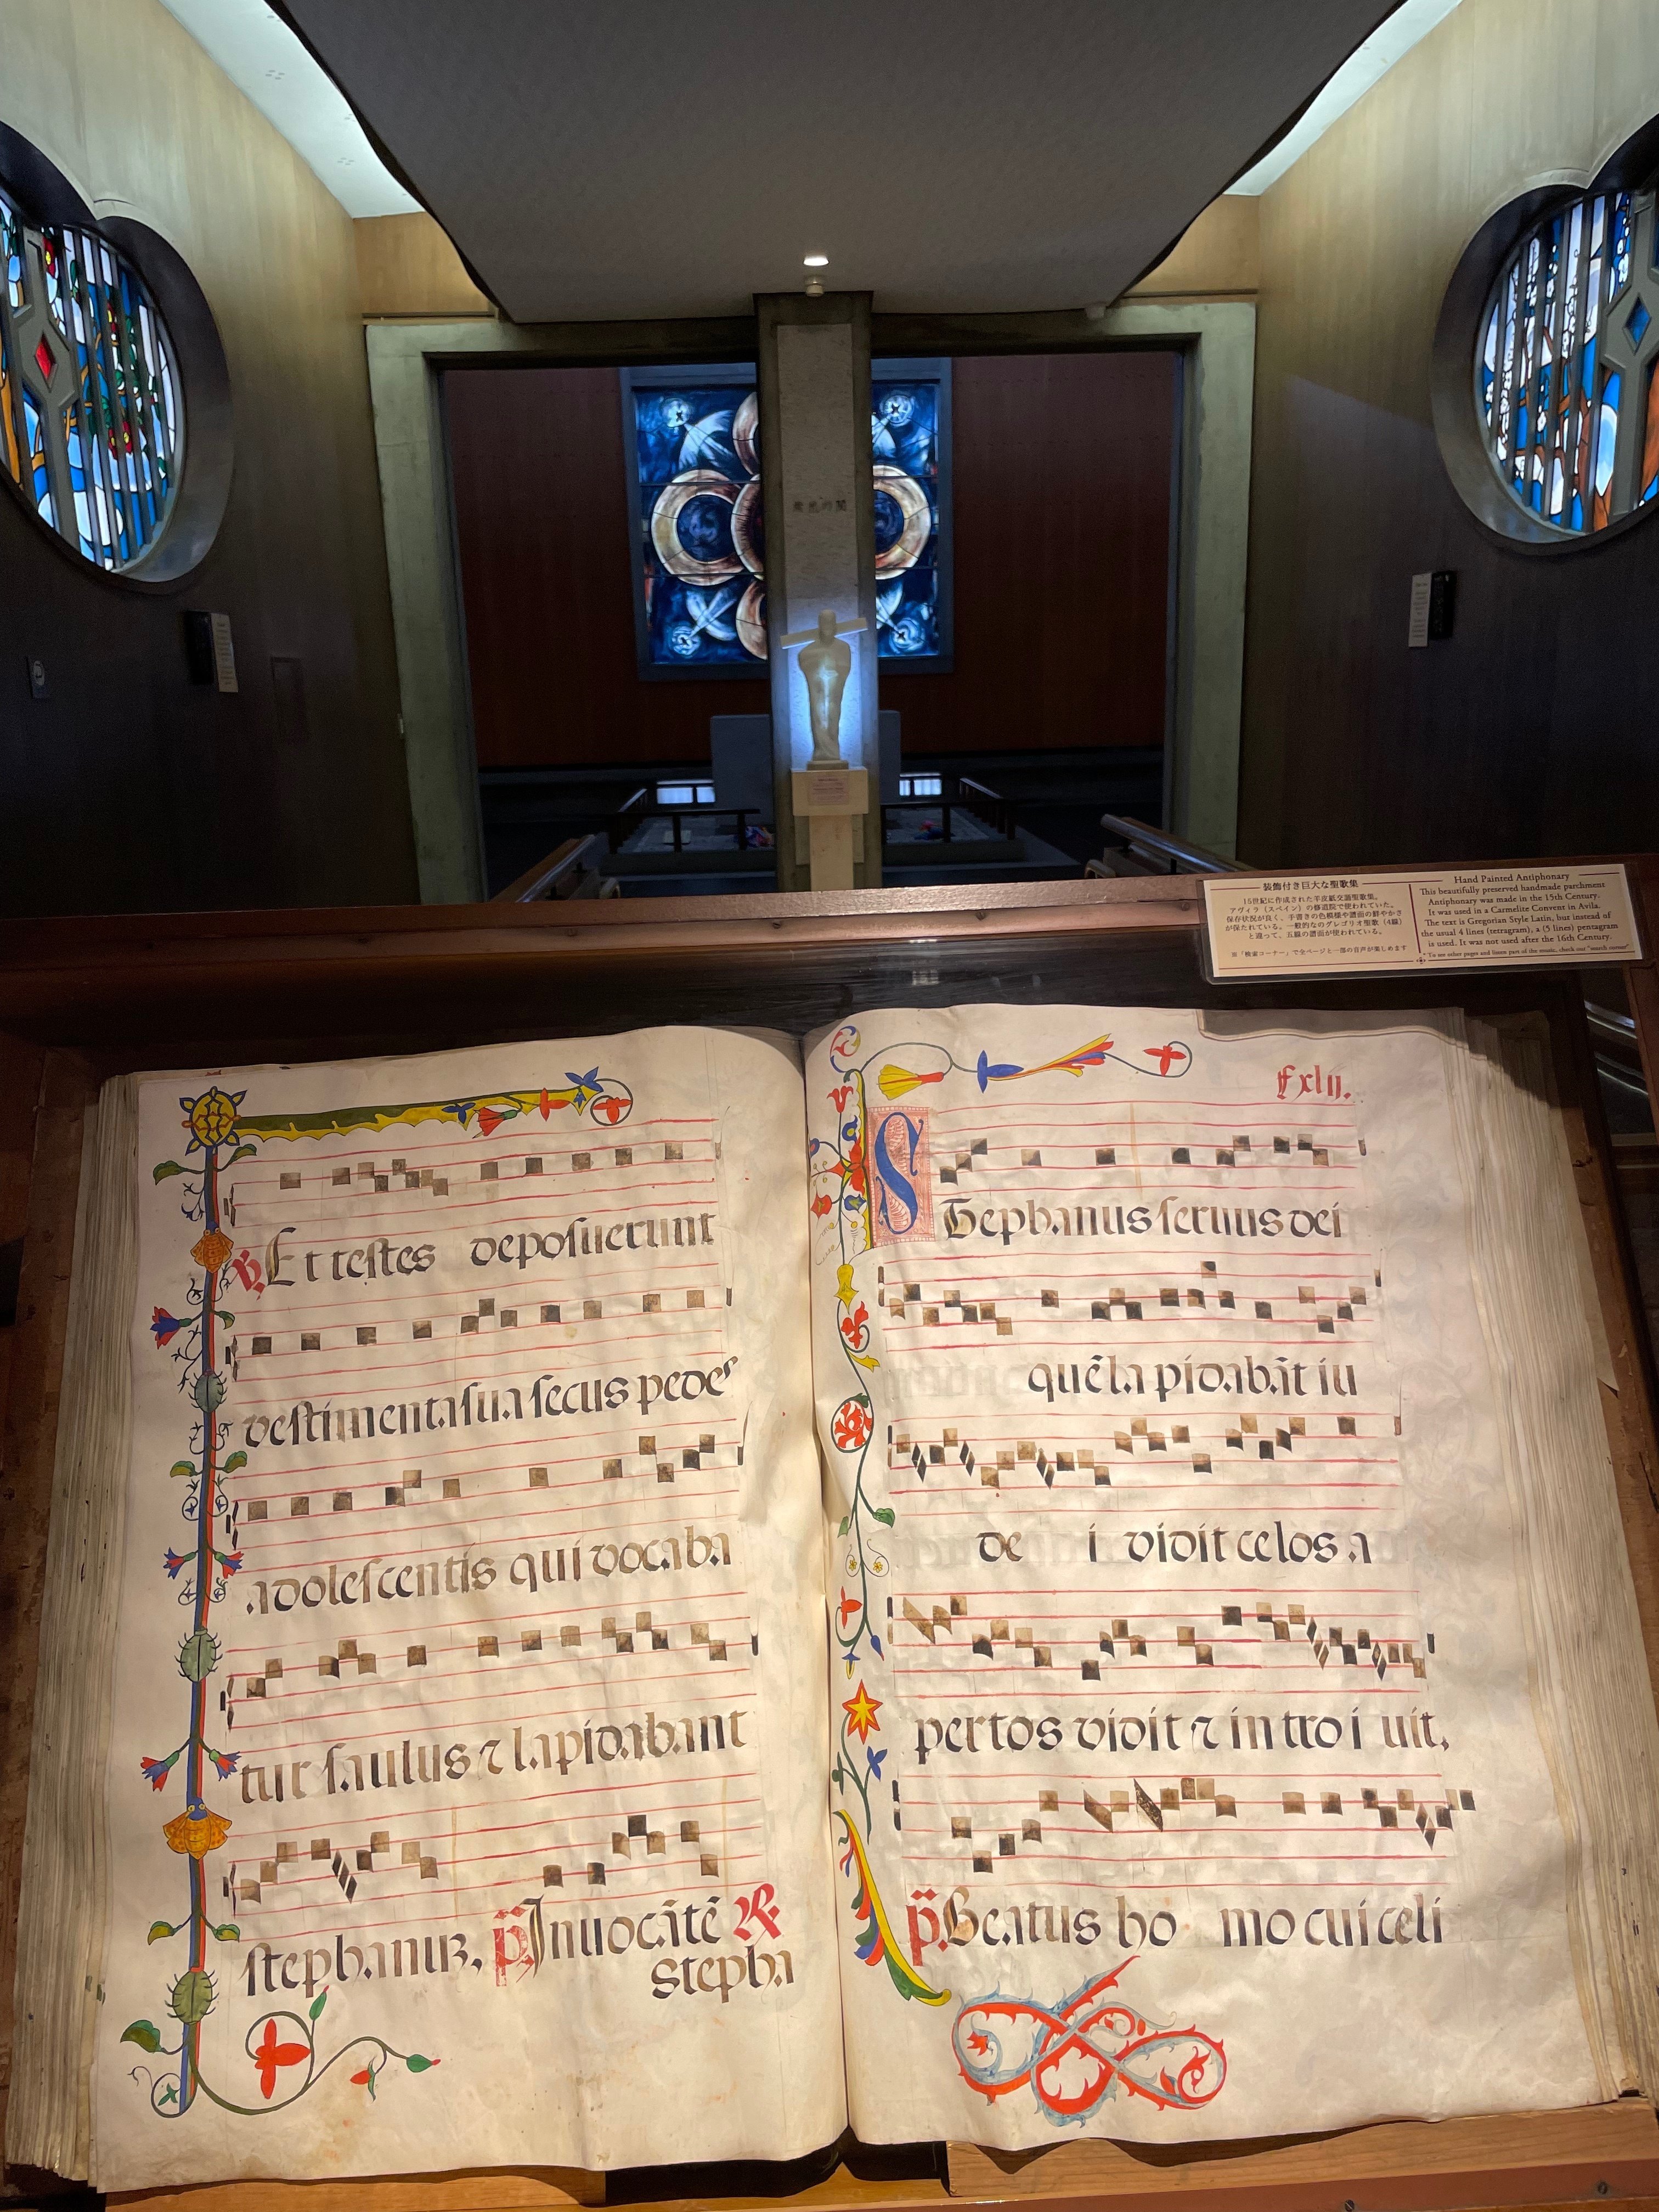 装飾付き巨大な聖歌集
15世紀に作成された羊皮紙交誦聖歌集。
アヴィラ（スペイン）の修道院で使われていた。
保存状況が良く、手書きの色模様や譜面の鮮やかさ
が保たれている。一般的なのグレゴリオ聖歌（4線）
と違って、五線の譜面が使われている。
※「検索コーナー」で全ページと一部の音声が楽しめます
Hand Painted Antiphonary
This beautifully preserved handmade parchment
Antiphonary was made in the 15th Century.
It was used in a Carmelite Convent in Avila.
The text is Gregorian Style Latin, but instead of
the usual 4 lines (tetragram), a (5 lines) pentagram
is used. It was not used after the 16th Century.
* To see other pages and listen part of the music, check out "search corner"
℣. Et testes deposuerunt
vestimenta sua secus pedes
adolescentis qui vocaba
tur saulus ⁊ lapidabant
stephanuz. p̄ Inuocātē ℟
stepha
fxlii.
STephanus seruus dei
quē lapidabāt iu
de i vidit celos a
pertos vidit ⁊ introi uit.
p̄. Beatus ho mo cui celi